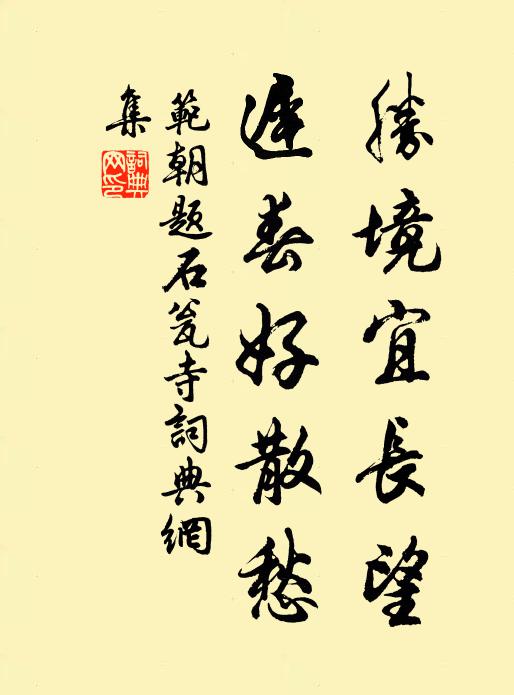 勝境宜長望
遲春好散愁
範朝題石瓮寺詞典網
集
詞典網印